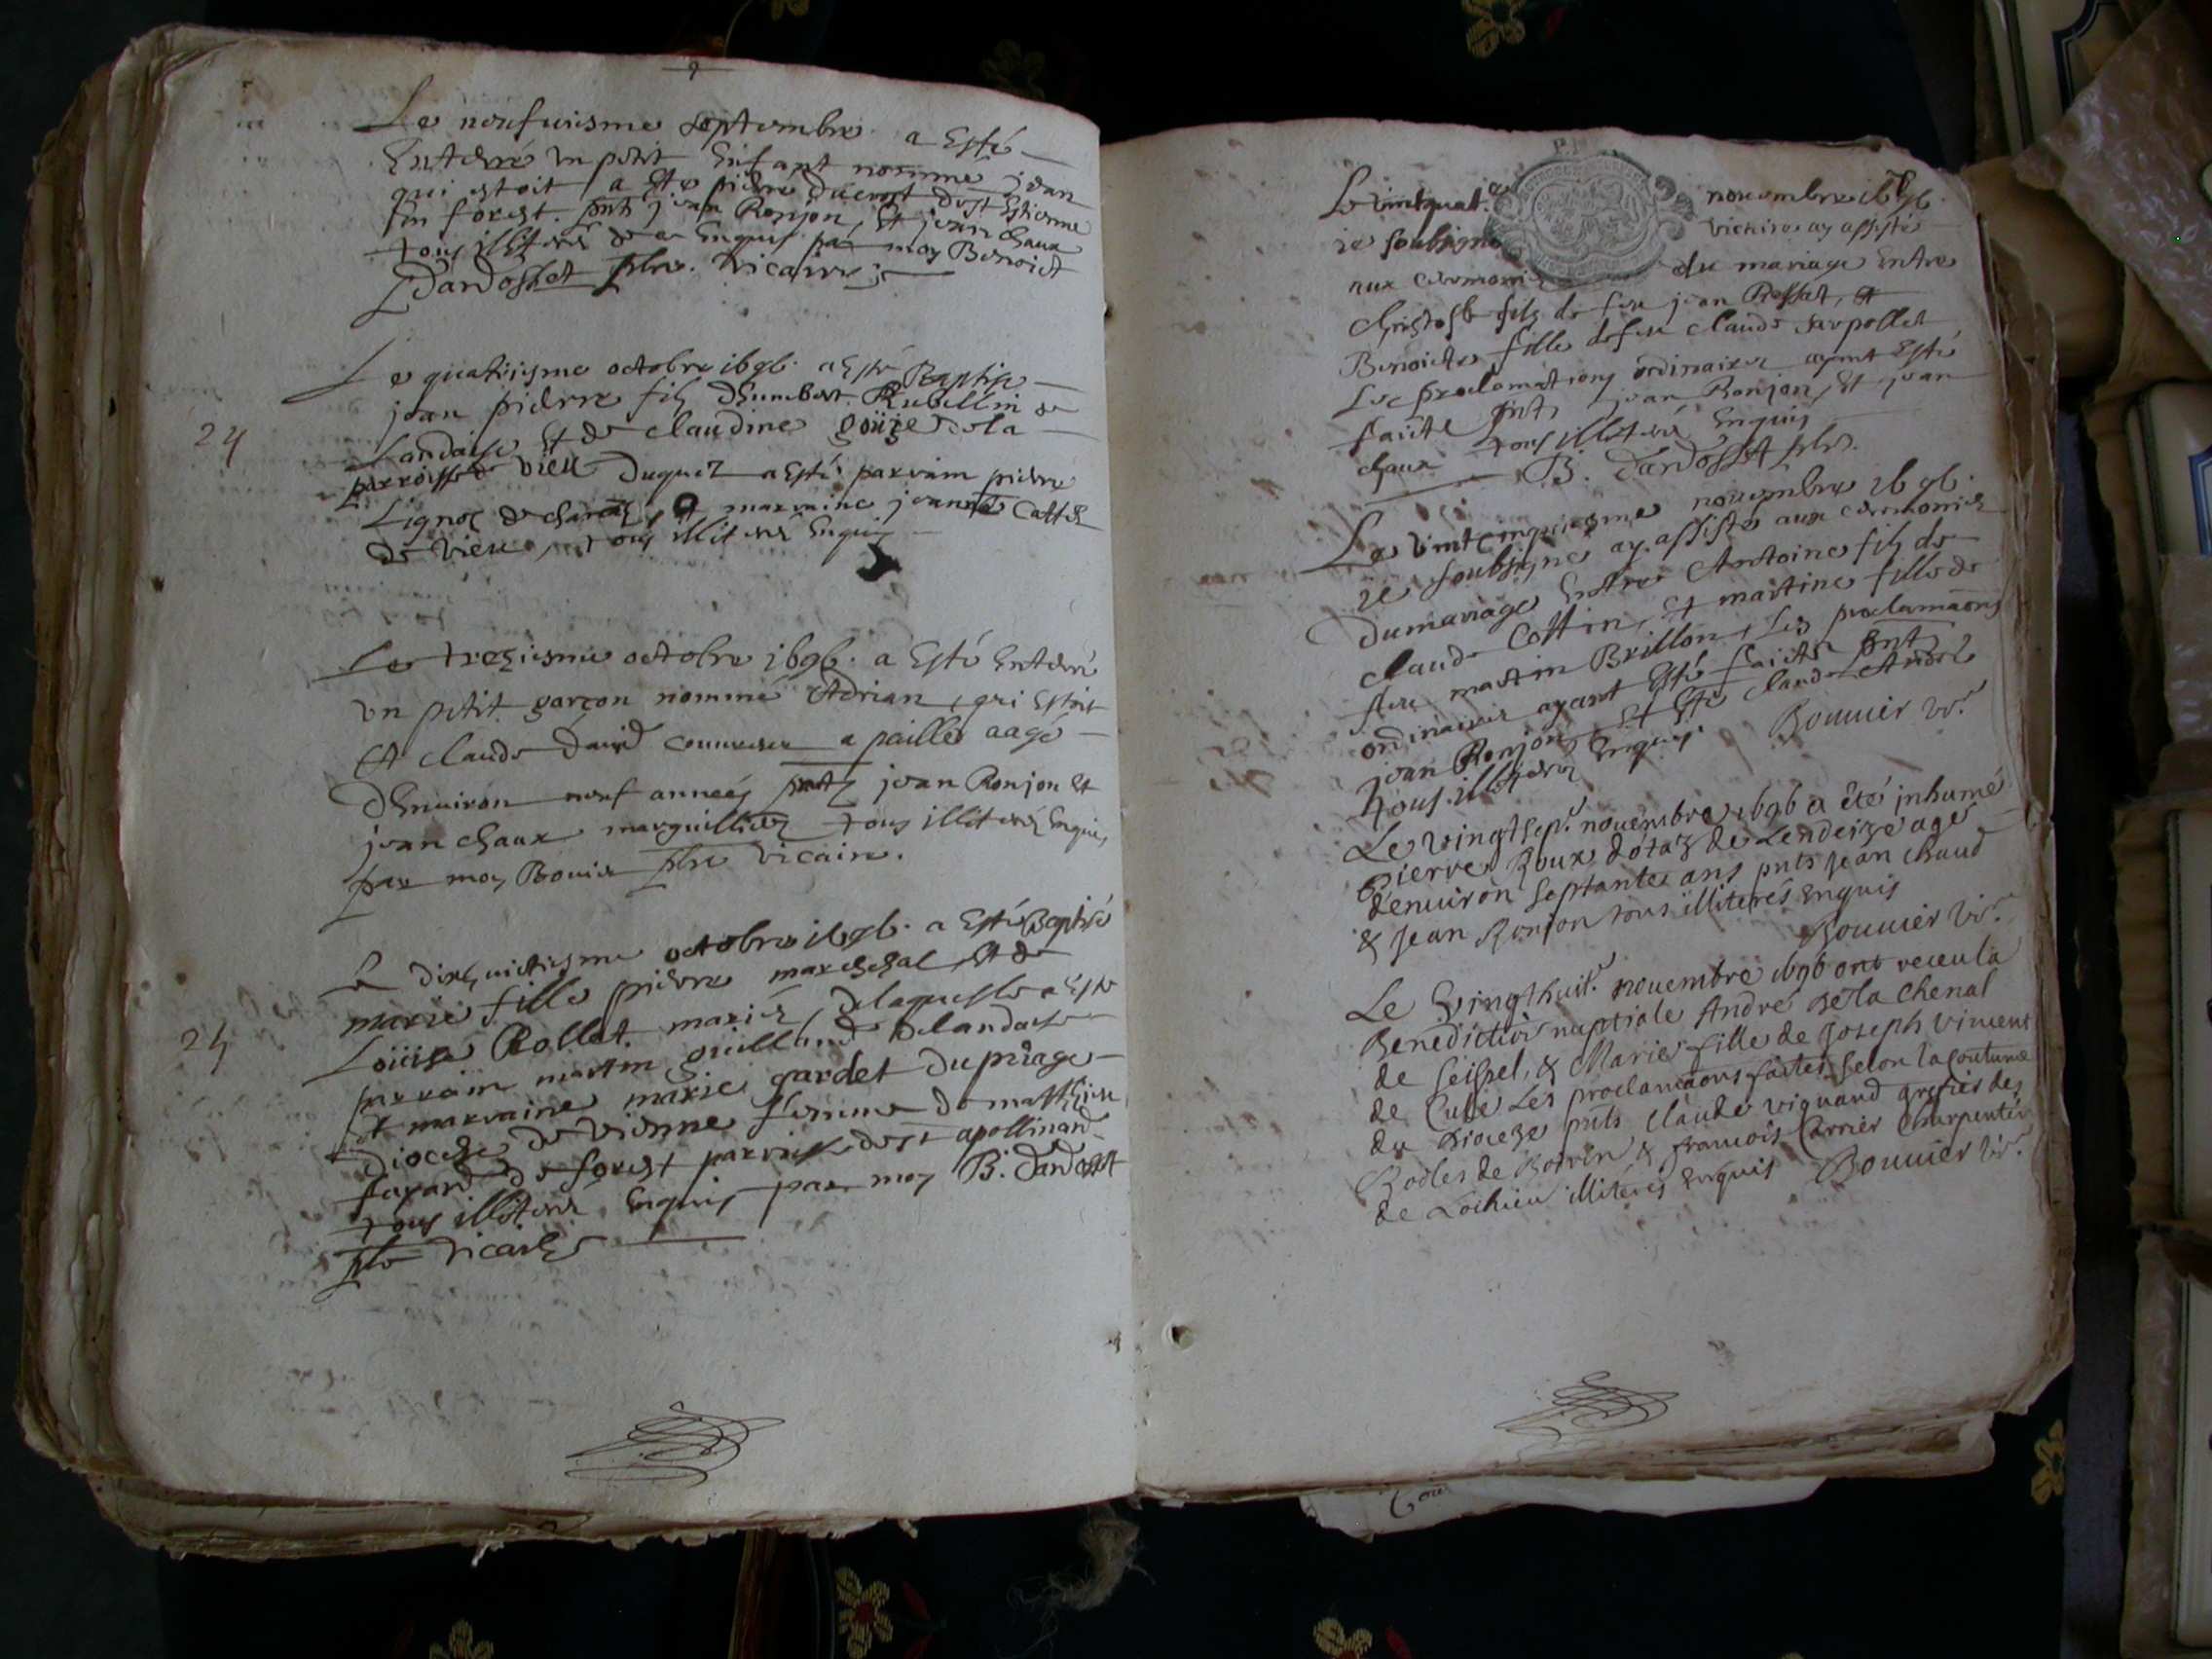 Le neufviesme septembre a esté
Enterré un petit Enfant nommé jean
qui estoit a
En forest. pnts jean Ronjon, Et jean chaux
tous illiterés de ce Enquis par moy Benoict
Dardosset pbre. vicaire
Le quatriesme octobre 1696. a esté Baptisé
jean pierre fils d'humbert Rubellin de
Landaise Et de claudine gouze de la
24
parroisse de vieu duquel a esté parrain pierre
de Et marraine jeanne
de vieu, tous illiterés Enquis
Le treziesme octobre 1696. a Esté Enterré
un petit garçon nommé Adrian, qui Estoit
Et claude david a paille aagé
d'Environ neuf années pnts jean Ronjon Et
jean chaux marguilliers tous illiterés Enquis
par moy Bovier pbre vicaire.
Le dixhuictiesme octobre 1696. a Esté Baptisé
marie fille pierre mareschal Et de
Louise Rollet mariés, delaquelle a Esté
24
parrain martin guilland de landaise
Et marraine marie gardet du
diocese de vienne femme de matthieu
favard de forest parroisse de st apollinard
tous illiterés Enquis par moy B. Dardosset
pbre vicaire
Le vintquat. novembre 1696.
ie soubsigné vicaire ay assisté
aux ceremonies du mariage Entre
christofle fils de feu jean Pressat, Et
Benoicte fille de feu claude sarpollet
Les proclamations ordinaires ayant Esté
faicte pnts jean Ronjon, Et jean
chaux tous illiterés Enquis
B. Dardosset pbre.
Le vintcinquiesme novembre 1696.
ie soubsigné ay assisté aux ceremonies
du mariage Entre Antoine fils de
claude Cottin, Et martine fille de
feu martin Brillon, Les proclamaons
ordinaires ayant Esté faictes pnts
jean Ronjon, Et claude
tous illiterés Enquis. Bouvier vic.
Le vingtsept. novembre 1696 a été inhumé
Pierre Roux dotaz de Lendeize agé
denuiron septante ans pnts Jean chaud
& Jean Ronjon tous illiterés Enquis
Bouuier vic.
Le vingthuit. nouembre 1696 ont receu la
Benediction nuptiale André de la Chenal
de seissel, & Marie fille de Joseph vincent
de Cule Les proclamaons faites selon la coutume
du Dioceze pnts claude vignand grefier des
Rodles de & francois Carrier Charpentier
de Lochieu illiterés Enquis Bouuier vic.